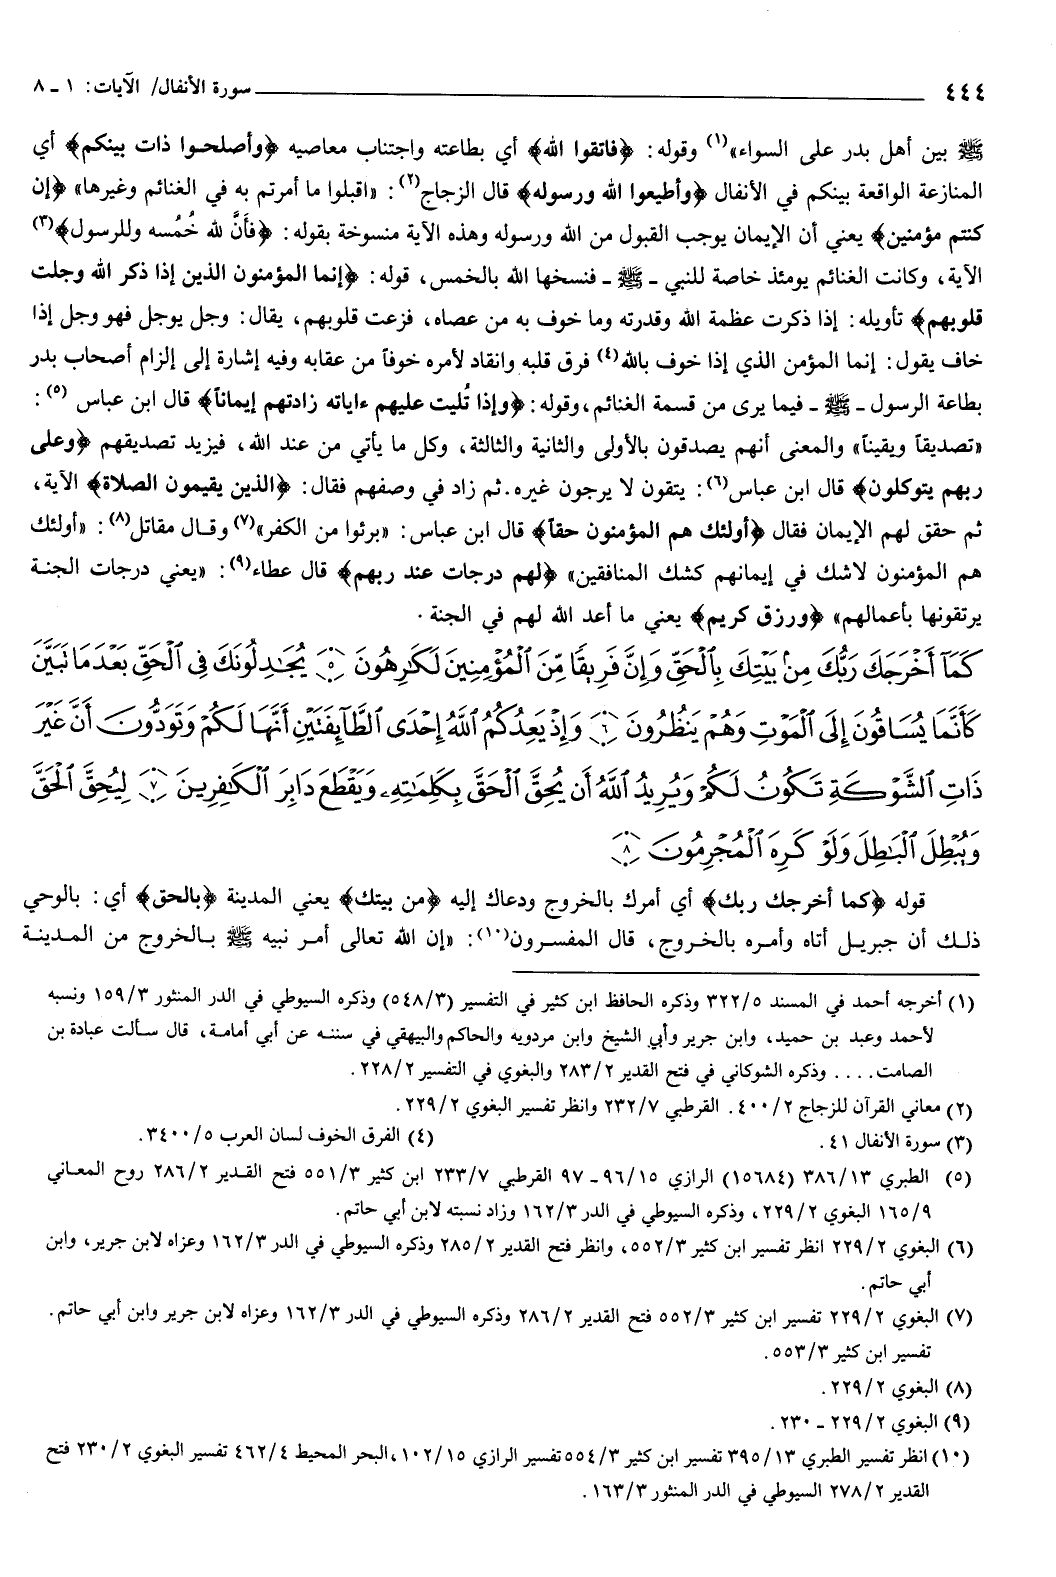 ٤٤٤ سورة الأنفال/ الآيات: ١ - ٨
ﷺ بين أهل بدر على السواء»(١) وقوله: ﴿فاتقوا الله﴾ أي بطاعته واجتناب معاصيه ﴿وأصلحوا ذات بينكم﴾ أي
المنازعة الواقعة بينكم في الأنفال ﴿وأطيعوا الله ورسوله﴾ قال الزجاج(٢): «اقبلوا ما أمرتم به في الغنائم وغيرها» ﴿إن
كنتم مؤمنين﴾ يعني أن الإيمان يوجب القبول من الله ورسوله وهذه الآية منسوخة بقوله: ﴿فأنَّ لله خُمُسه وللرسول﴾(٣)
الآية، وكانت الغنائم يومئذ خاصة للنبي - ﷺ - فنسخها الله بالخمس، قوله: ﴿إنما المؤمنون الذين إذا ذكر الله وجلت
قلوبهم﴾ تأويله: إذا ذكرت عظمة الله وقدرته وما خوف به من عصاه، فزعت قلوبهم، يقال: وجل يوجل فهو وجل إذا
خاف يقول: إنما المؤمن الذي إذا خوف بالله(٤) فرق قلبه وانقاد لأمره خوفاً من عقابه وفيه إشارة إلى إلزام أصحاب بدر
بطاعة الرسول - ﷺ - فيما يرى من قسمة الغنائم، وقوله: ﴿وإذا تُليت عليهم ءاياته زادتهم إيماناً﴾ قال ابن عباس (٥):
«تصديقاً ويقيناً» والمعنى أنهم يصدقون بالأولى والثانية والثالثة، وكل ما يأتي من عند الله، فيزيد تصديقهم ﴿وعلى
ربهم يتوكلون﴾ قال ابن عباس(٦): يتقون لا يرجون غيره. ثم زاد في وصفهم فقال: ﴿الذين يقيمون الصلاة﴾ الآية،
ثم حقق لهم الإيمان فقال ﴿أولئك هم المؤمنون حقاً﴾ قال ابن عباس: «برئوا من الكفر»(٧) وقال مقاتل(٨): «أولئك
هم المؤمنون لاشك في إيمانهم كشك المنافقين» ﴿لهم درجات عند ربهم﴾ قال عطاء(٩): «يعني درجات الجنة
يرتقونها بأعمالهم» ﴿ورزق كريم﴾ يعني ما أعد الله لهم في الجنة.
كَمَآ أَخْرَجَكَ رَبُّكَ مِنۢ بَيْتِكَ بِٱلْحَقِّ وَإِنَّ فَرِيقًا مِّنَ ٱلْمُؤْمِنِينَ لَكَٰرِهُونَ ﴿٥﴾ يُجَٰدِلُونَكَ فِى ٱلْحَقِّ بَعْدَمَا تَبَيَّنَ
كَأَنَّمَا يُسَاقُونَ إِلَى ٱلْمَوْتِ وَهُمْ يَنظُرُونَ ﴿٦﴾ وَإِذْ يَعِدُكُمُ ٱللَّهُ إِحْدَى ٱلطَّآئِفَتَيْنِ أَنَّهَا لَكُمْ وَتَوَدُّونَ أَنَّ غَيْرَ
ذَاتِ ٱلشَّوْكَةِ تَكُونُ لَكُمْ وَيُرِيدُ ٱللَّهُ أَن يُحِقَّ ٱلْحَقَّ بِكَلِمَٰتِهِۦ وَيَقْطَعَ دَابِرَ ٱلْكَٰفِرِينَ ﴿٧﴾ لِيُحِقَّ ٱلْحَقَّ
وَيُبْطِلَ ٱلْبَٰطِلَ وَلَوْ كَرِهَ ٱلْمُجْرِمُونَ ﴿٨﴾
قوله ﴿كما أخرجك ربك﴾ أي أمرك بالخروج ودعاك إليه ﴿من بيتك﴾ يعني المدينة ﴿بالحق﴾ أي: بالوحي
ذلك أن جبريل أتاه وأمره بالخروج، قال المفسرون(١٠): «إن الله تعالى أمر نبيه ﷺ بالخروج من المدينة
(١) أخرجه أحمد في المسند ٣٢٢/٥ وذكره الحافظ ابن كثير في التفسير (٥٤٨/٣) وذكره السيوطي في الدر المنثور ١٥٩/٣ ونسبه
لأحمد وعبد بن حميد، وابن جرير وأبي الشيخ وابن مردويه والحاكم والبيهقي في سننه عن أبي أمامة، قال سألت عبادة بن
الصامت.... وذكره الشوكاني في فتح القدير ٢٨٣/٢ والبغوي في التفسير ٢٢٨/٢.
(٢) معاني القرآن للزجاج ٤٠٠/٢. القرطبي ٢٣٢/٧ وانظر تفسير البغوي ٢٢٩/٢.
(٣) سورة الأنفال ٤١. (٤) الفرق الخوف لسان العرب ٣٤٠٠/٥.
(٥) الطبري ٣٨٦/١٣ (١٥٦٨٤) الرازي ٩٦/١٥ - ٩٧ القرطبي ٢٣٣/٧ ابن كثير ٥٥١/٣ فتح القدير ٢٨٦/٢ روح المعاني
١٦٥/٩ البغوي ٢٢٩/٢، وذكره السيوطي في الدر ١٦٢/٣ وزاد نسبته لابن أبي حاتم.
(٦) البغوي ٢٢٩/٢ انظر تفسير ابن كثير ٥٥٢/٣، وانظر فتح القدير ٢٨٥/٢ وذكره السيوطي في الدر ١٦٢/٣ وعزاه لابن جرير، وابن
أبي حاتم.
(٧) البغوي ٢٢٩/٢ تفسير ابن كثير ٥٥٢/٣ فتح القدير ٢٨٦/٢ وذكره السيوطي في الدر ١٦٢/٣ وعزاه لابن جرير وابن أبي حاتم.
تفسير ابن كثير ٥٥٣/٣.
(٨) البغوي ٢٢٩/٢.
(٩) البغوي ٢٢٩/٢ - ٢٣٠.
(١٠) انظر تفسير الطبري ٣٩٥/١٣ تفسير ابن كثير ٥٥٤/٣ تفسير الرازي ١٠٢/١٥، البحر المحيط ٤٦٢/٤ تفسير البغوي ٢٣٠/٢ فتح
القدير ٢٧٨/٢ السيوطي في الدر المنثور ١٦٣/٣.